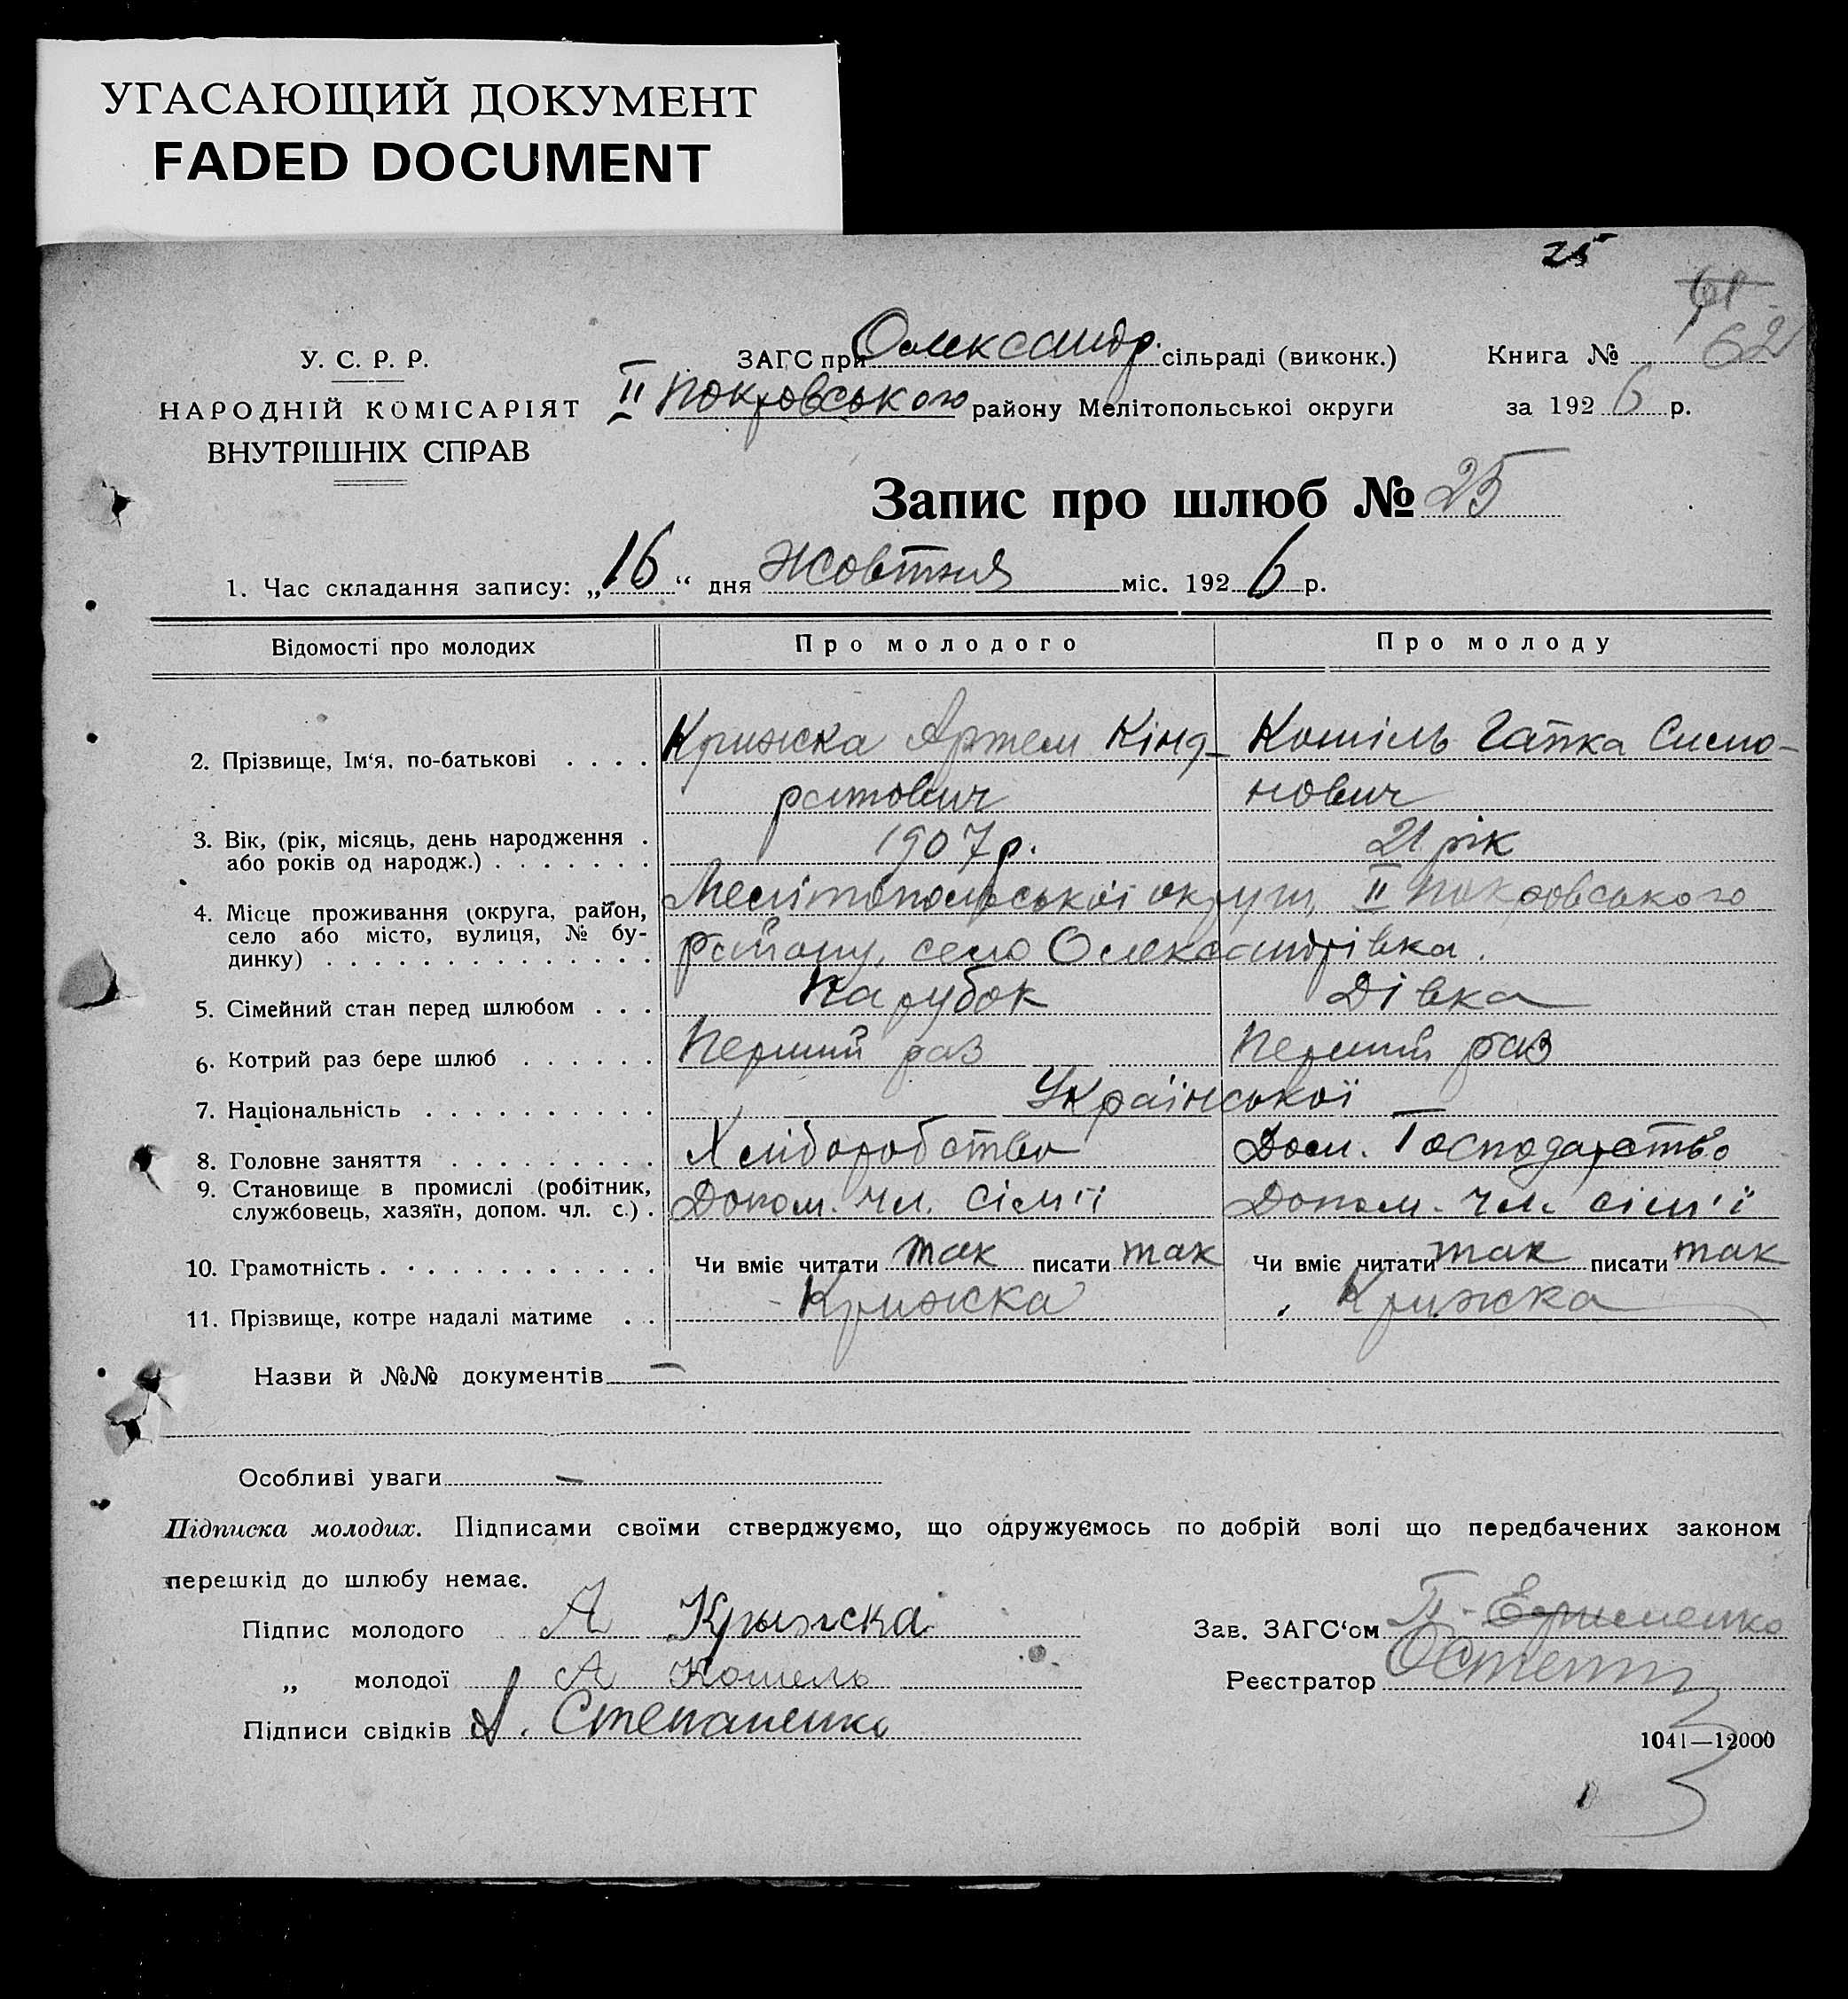 УГАСАЮЩИЙ ДОКУМЕНТ
FADED DOCUMENT
25
61
62
У. С. Р. Р.
НАРОДНІЙ КОМІСАРІЯТ
ВНУТРІШНІХ СПРАВ
ЗАГС при Олександр. сільраді (виконк.)
II Покровського району Мелітопольськоі округи
Книга №
за 1926 р.
Запис про шлюб № 25
1. Час складання запису: „16“ дня Жовтня міс. 1926 р.
Відомості про молодих Про молодого Про молоду
2. Прізвище, Ім‘я, по-батькові . . . . Крижска Артем Кінд- Кошіль Гапка Симо-
ратович нович
3. Вік, (рік, місяць, день народження . 1907 р. 21 рік
або років од народж.) . . . . . . .
4. Місце проживання (округа, район, Мелітопольськоі округи, II Покровського
село або місто, вулиця, № бу- району, село Олександрівка.
динку) . . . . . . . . . . . . . .
5. Сімейний стан перед шлюбом . . . Парубок Дівка
6. Котрий раз бере шлюб . . . . . . Перший раз Перший раз
7. Національність . . . . . . . . . . Українськоі
8. Головне заняття . . . . . . . . . Хліборобство Дом. Господарство
9. Становище в промислі (робітник, Допом. чл. сім'ї Допом. чл. сім'ї
службовець, хазяїн, допом. чл. с.) .
10. Грамотність . . . . . . . . . . . Чи вміє читати так писати так Чи вміє читати так писати так
11. Прізвище, котре надалі матиме . . Крижска Крижска
Назви й №№ документів —
Особливі уваги —
Підписка молодих. Підписами своїми стверджуємо, що одружуємось по добрій волі що передбачених законом
перешкід до шлюбу немає.
Підпис молодого А Крыжска
Зав. ЗАГС‘ом
„ молодої А Кошель
Реєстратор
Підписи свідків А. Степаненко
1041—12000